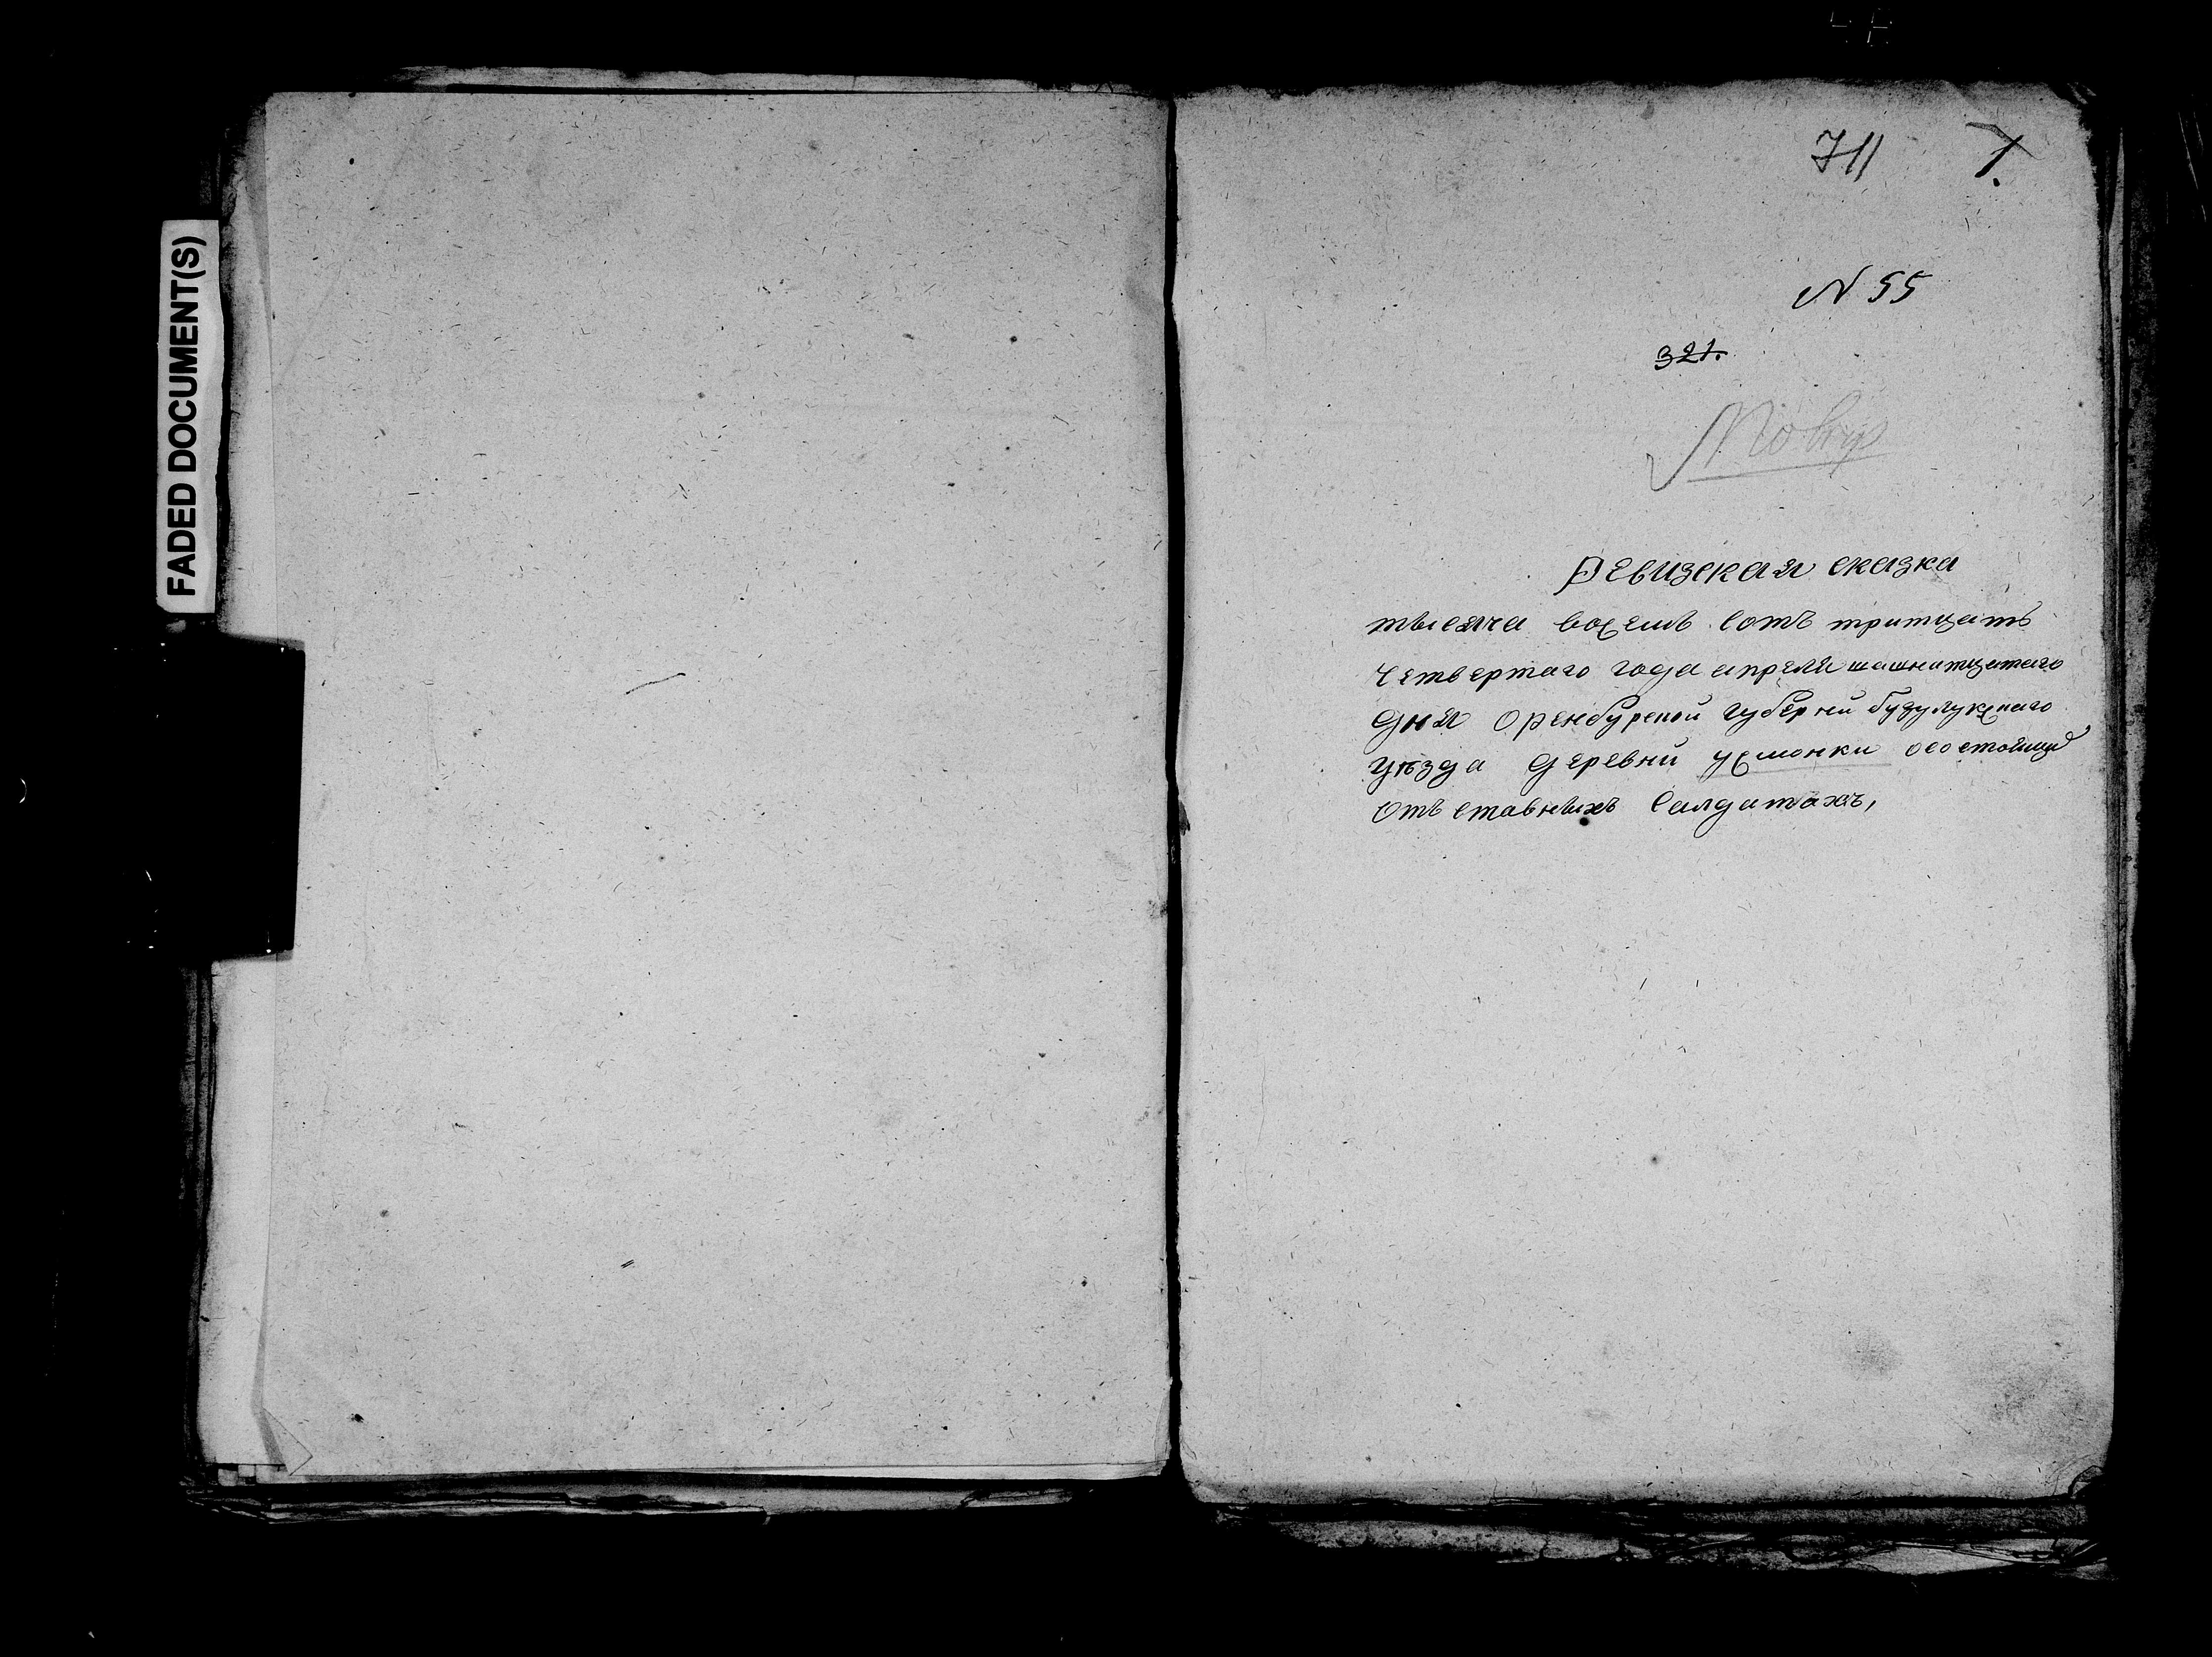 FADED DOCUMENT(S)
711 1.
N 55
321.
Ревизская сказка
тысяча восемь сотъ тритцать
четвертаго года апреля
дня Оренбурской губерни бузулукскаго
уѣзда деревни усманки осостоящих
отъ ставныхъ Салдатахъ,